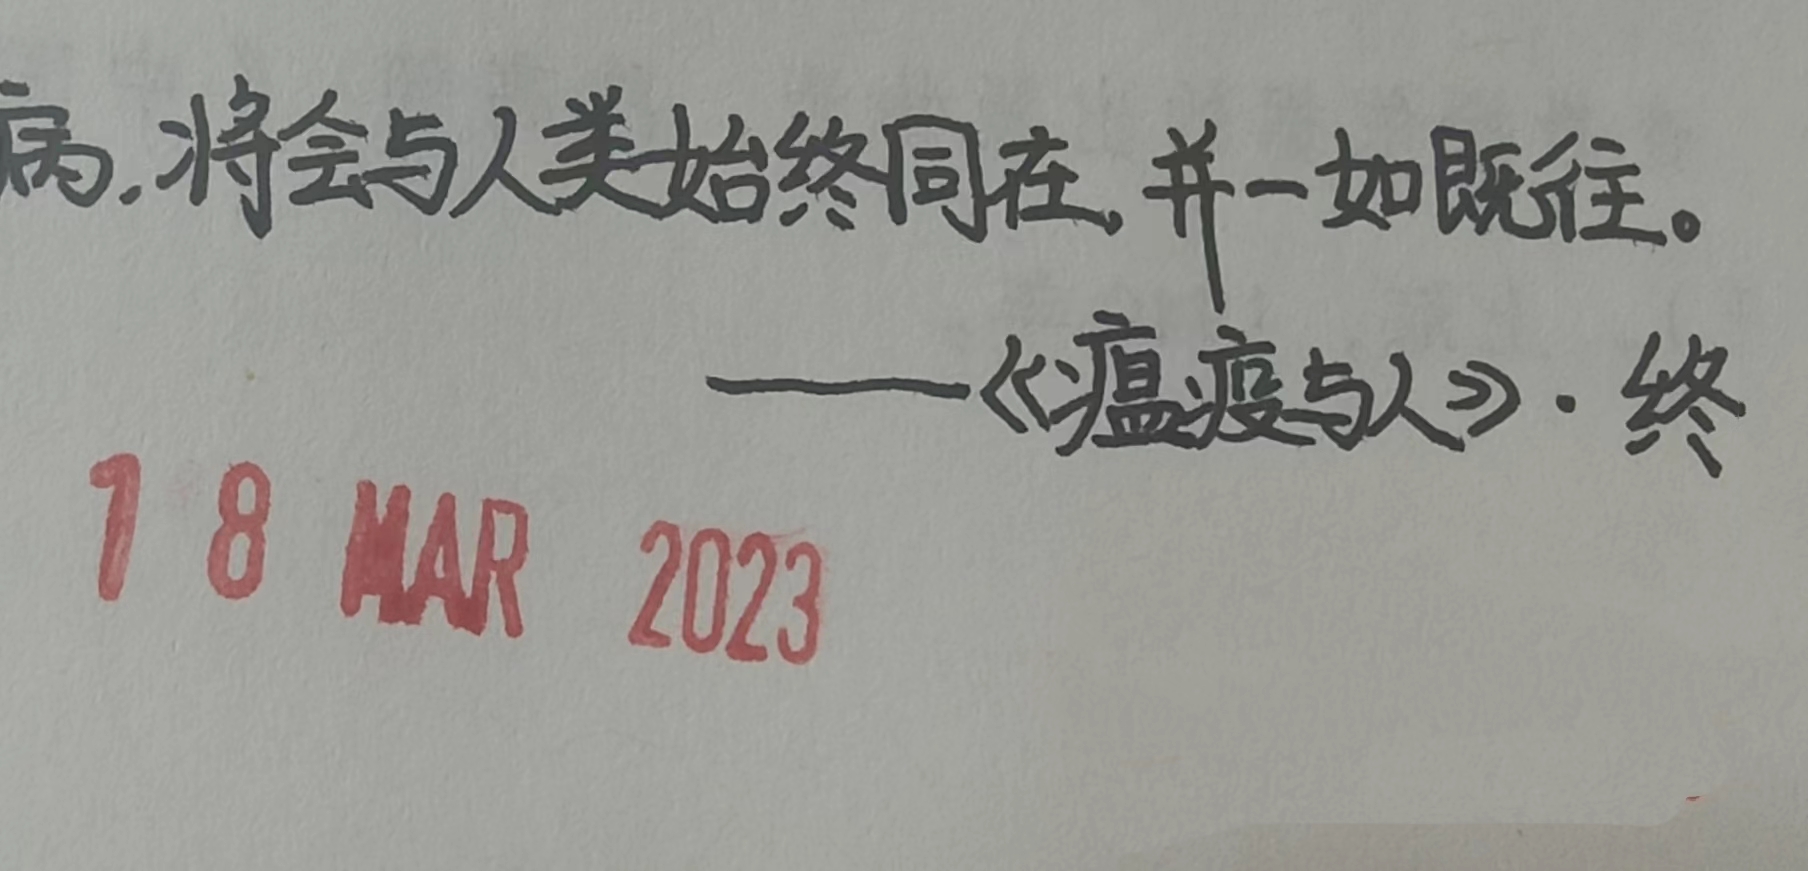 病,将会与人类始终同在,并一如既往。
——《瘟疫与人》·终
18 MAR 2023